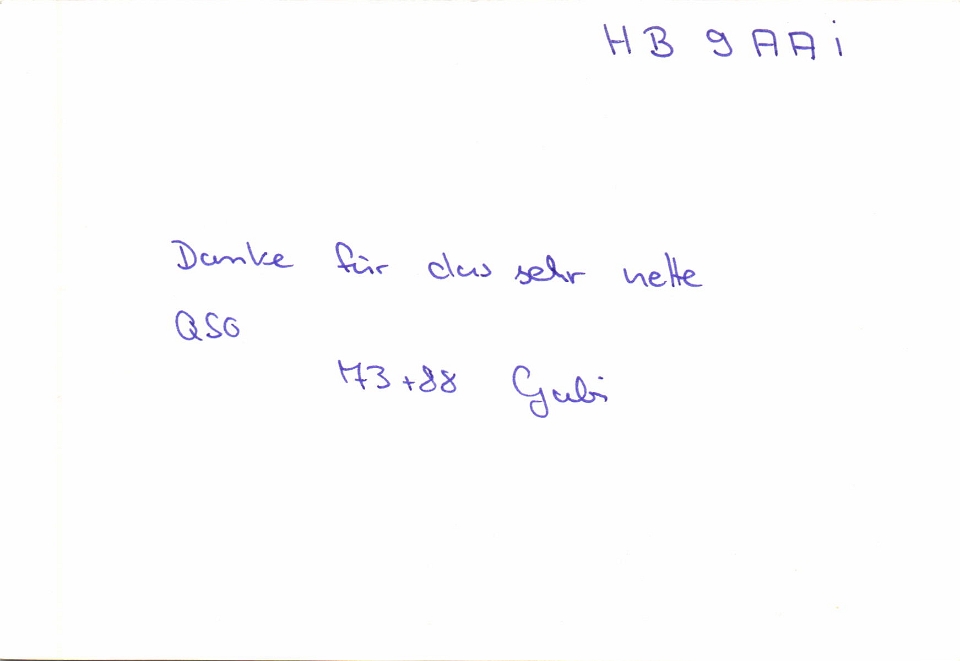 HB 9 AA i
Danke für das sehr nette
QSO
73 + 88 Gabi